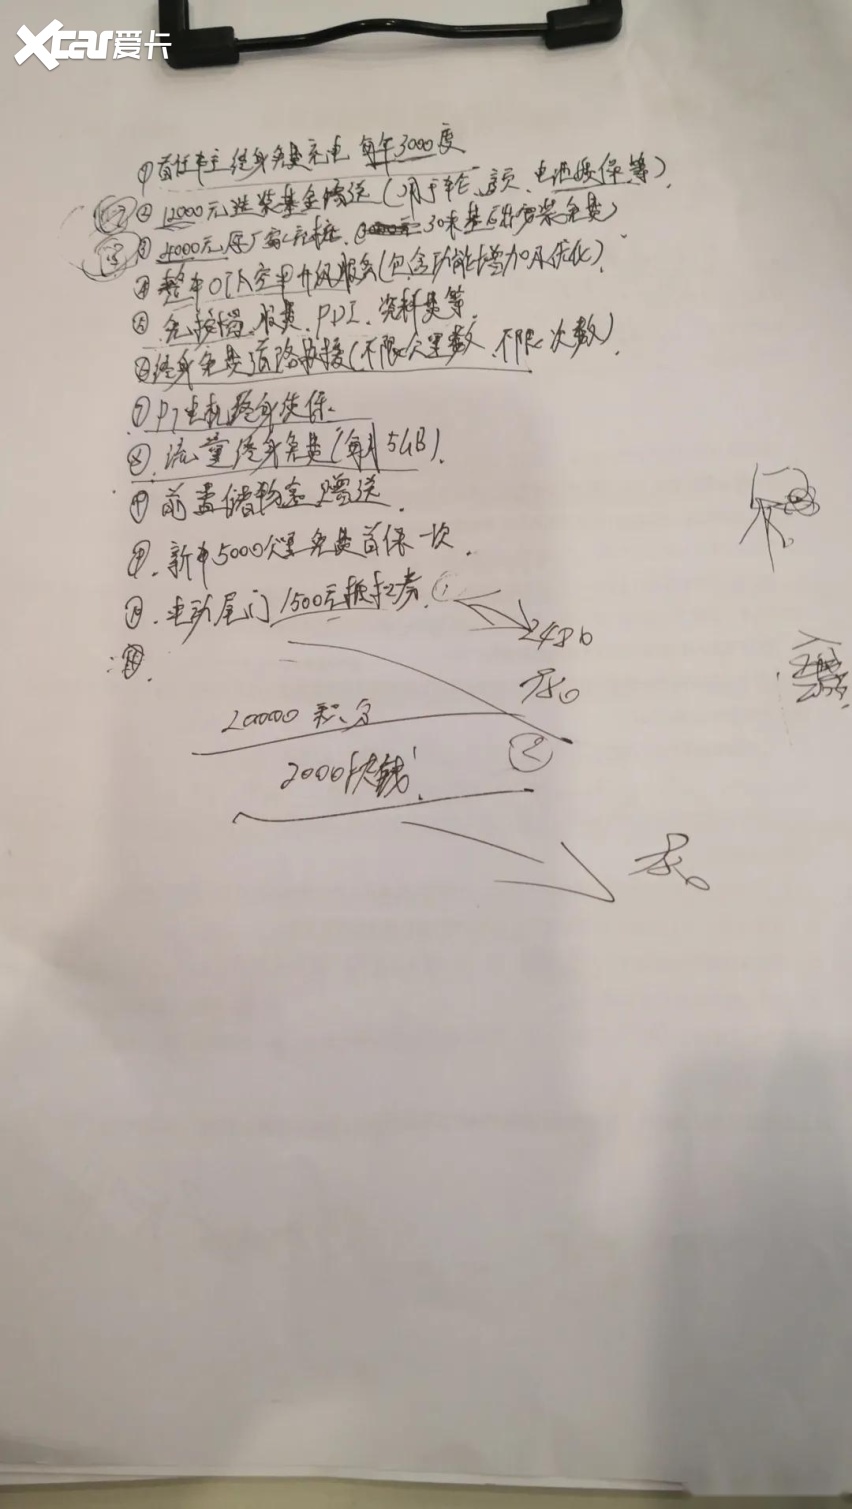 Xcar爱卡
① 首任车主终身免费充电 每年3000度
② 12000元选装基金赠送(用于轮、颜、电池质保等).
③ 4000元原厂充电桩. 30米基础安装免费)
④ 整车OTA空中升级服务(包含功能增加及优化).
⑤ 免按揭服费、PDI、资料费等.
⑥ 终身免费道路救援(不限公里数、不限次数).
⑦ 电机终身质保.
⑧. 流量终身免费(每月5GB).
⑨ 前盖储物盒赠送.
⑨. 新车5000公里免费首保一次.
⑩. 电动尾门1500元抵扣券. ①
20000 积分
②
2000块钱!